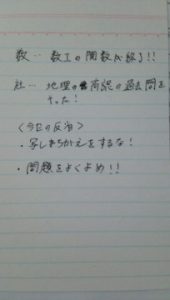 数… 数Ⅰの関数が終了!!
社… 地理の 高認の過去問を
やった!
〈今日の反省〉
・写しまちがえをするな!
・問題をよくよめ!!